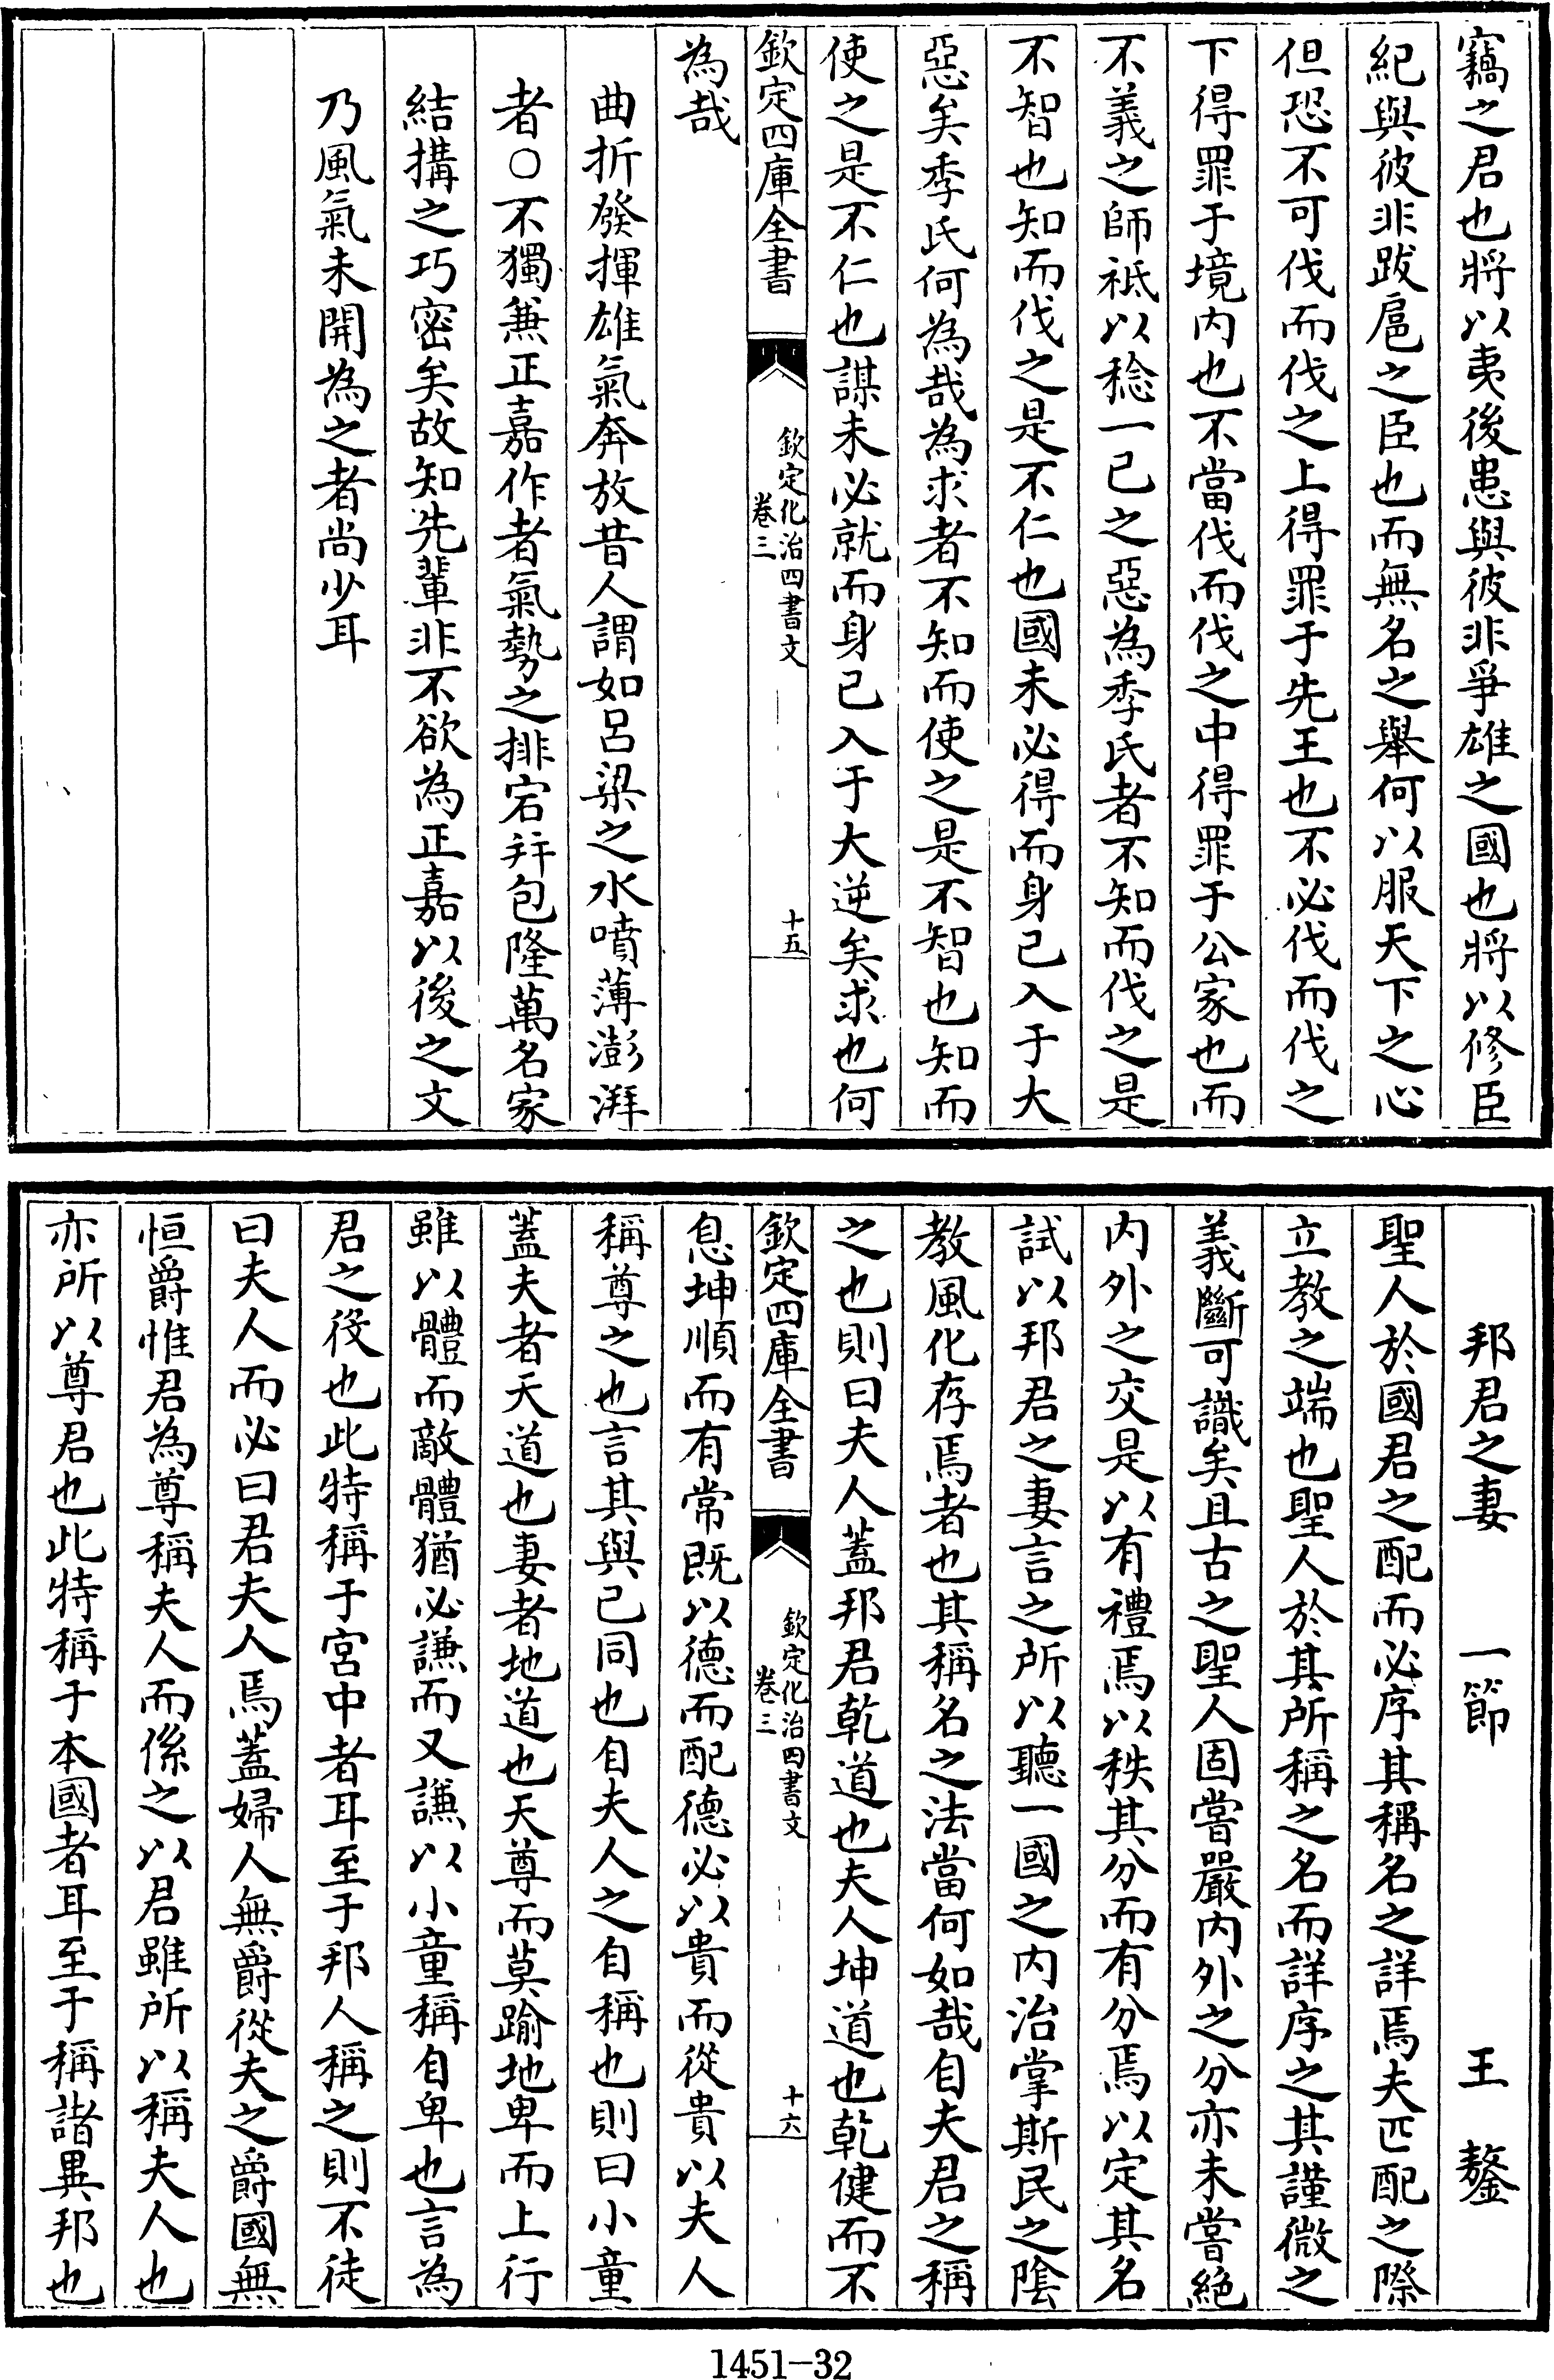 竊之君也將以夷後患與彼非爭雄之國也將以修臣
紀與彼非跋扈之臣也而無名之舉何以服天下之心
但恐不可伐而伐之上得罪于先王也不必伐而伐之
下得罪于境内也不當伐而伐之中得罪于公家也而
不義之師祗以稔一已之惡為季氏者不知而伐之是
不智也知而伐之是不仁也國未必得而身已入于大
惡矣季氏何為哉為求者不知而使之是不智也知而
使之是不仁也謀未必就而身已入于大逆矣求也何
欽定四庫全書
欽定化治四書文
卷三
十五
為哉
曲折發揮雄氣奔放昔人謂如呂梁之水噴薄澎湃
者○不獨兼正嘉作者氣勢之排宕并包隆萬名家
結搆之巧密矣故知先輩非不欲為正嘉以後之文
乃風氣未開為之者尚少耳
邦君之妻 一節 王鏊
聖人於國君之配而必序其稱名之詳焉夫匹配之際
立教之端也聖人於其所稱之名而詳序之其謹微之
義斷可識矣且古之聖人固嘗嚴内外之分亦未嘗絶
内外之交是以有禮焉以秩其分而有分焉以定其名
試以邦君之妻言之所以聽一國之内治掌斯民之陰
教風化存焉者也其稱名之法當何如哉自夫君之稱
之也則曰夫人蓋邦君乾道也夫人坤道也乾健而不
欽定四庫全書
欽定化治四書文
卷三
十六
息坤順而有常既以德而配德必以貴而從貴以夫人
稱尊之也言其與已同也自夫人之自稱也則曰小童
蓋夫者天道也妻者地道也天尊而莫踰地卑而上行
雖以體而敵體猶必謙而又謙以小童稱自卑也言為
君之役也此特稱于宮中者耳至于邦人稱之則不徒
曰夫人而必曰君夫人焉蓋婦人無爵從夫之爵國無
恒爵惟君為尊稱夫人而係之以君雖所以稱夫人也
亦所以尊君也此特稱于本國者耳至于稱諸異邦也
1451-32